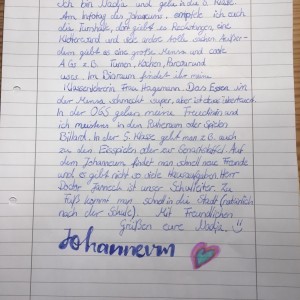 Ich bin Nadja und gehe in die 5. Klasse
Am Infotag des Johanneums, empfehle ich euch
die Turnhalle, dort gibt es Kletterstangen, eine
Kletterwand und viele andere tolle Sachen. Außer-
dem gibt es eine große Mensa und coole
A.G.s z.B. Turnen, Kochen, Parcour und
usw. Im Bioraum findet ihr meine
Klassenlehrerin Frau Hagemann. Das Essen in
der Mensa schmeckt super, aber ist etwas überteuert.
In der OGS gehen meine Freundinnen und
ich meistens in den Bücherraum oder Spielen
Billard. In der 5. Klasse geht man z.B. auch
zu den Eisspielen oder zur Gerolsteifel. Auf
dem Johanneum findet man schnell neue Freunde
und es gibt nicht so viele Hausaufgaben. Herr
Doktor Janneck ist unser Schulleiter. Zu
Fuß kommt man schnell in die Stadt (natürlich
nach der Schule). Mit Freundlichen
Grüßen eure Nadja.
Johanneum